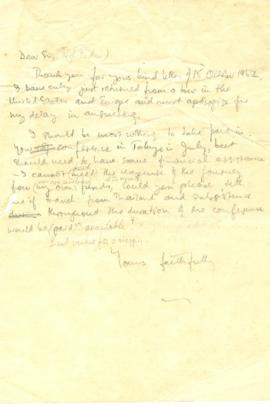 Dear Sir,
Thank you for your kind letter of 15 October 1962.
I have only just returned from a tour in the
United States and Europe and must apologize for
my delay in answering.
I should be most willing to take part in
your conference in Tokyo in July, but
should need to have some financial assistance
– I cannot meet the expense of the journey
from my own funds. Could you please tell
me if travel from Thailand and subsistence
throughout the duration of the conference
would be paid available?
Yours faithfully